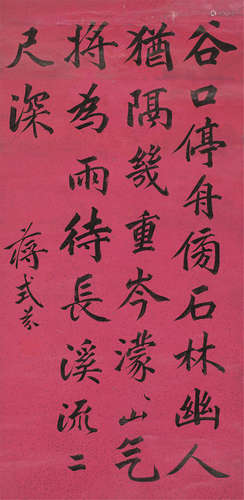 谷口停舟傍石林幽人
猶隔幾重岑濛山气
將為雨待長溪流二
尺深
蔣式芬